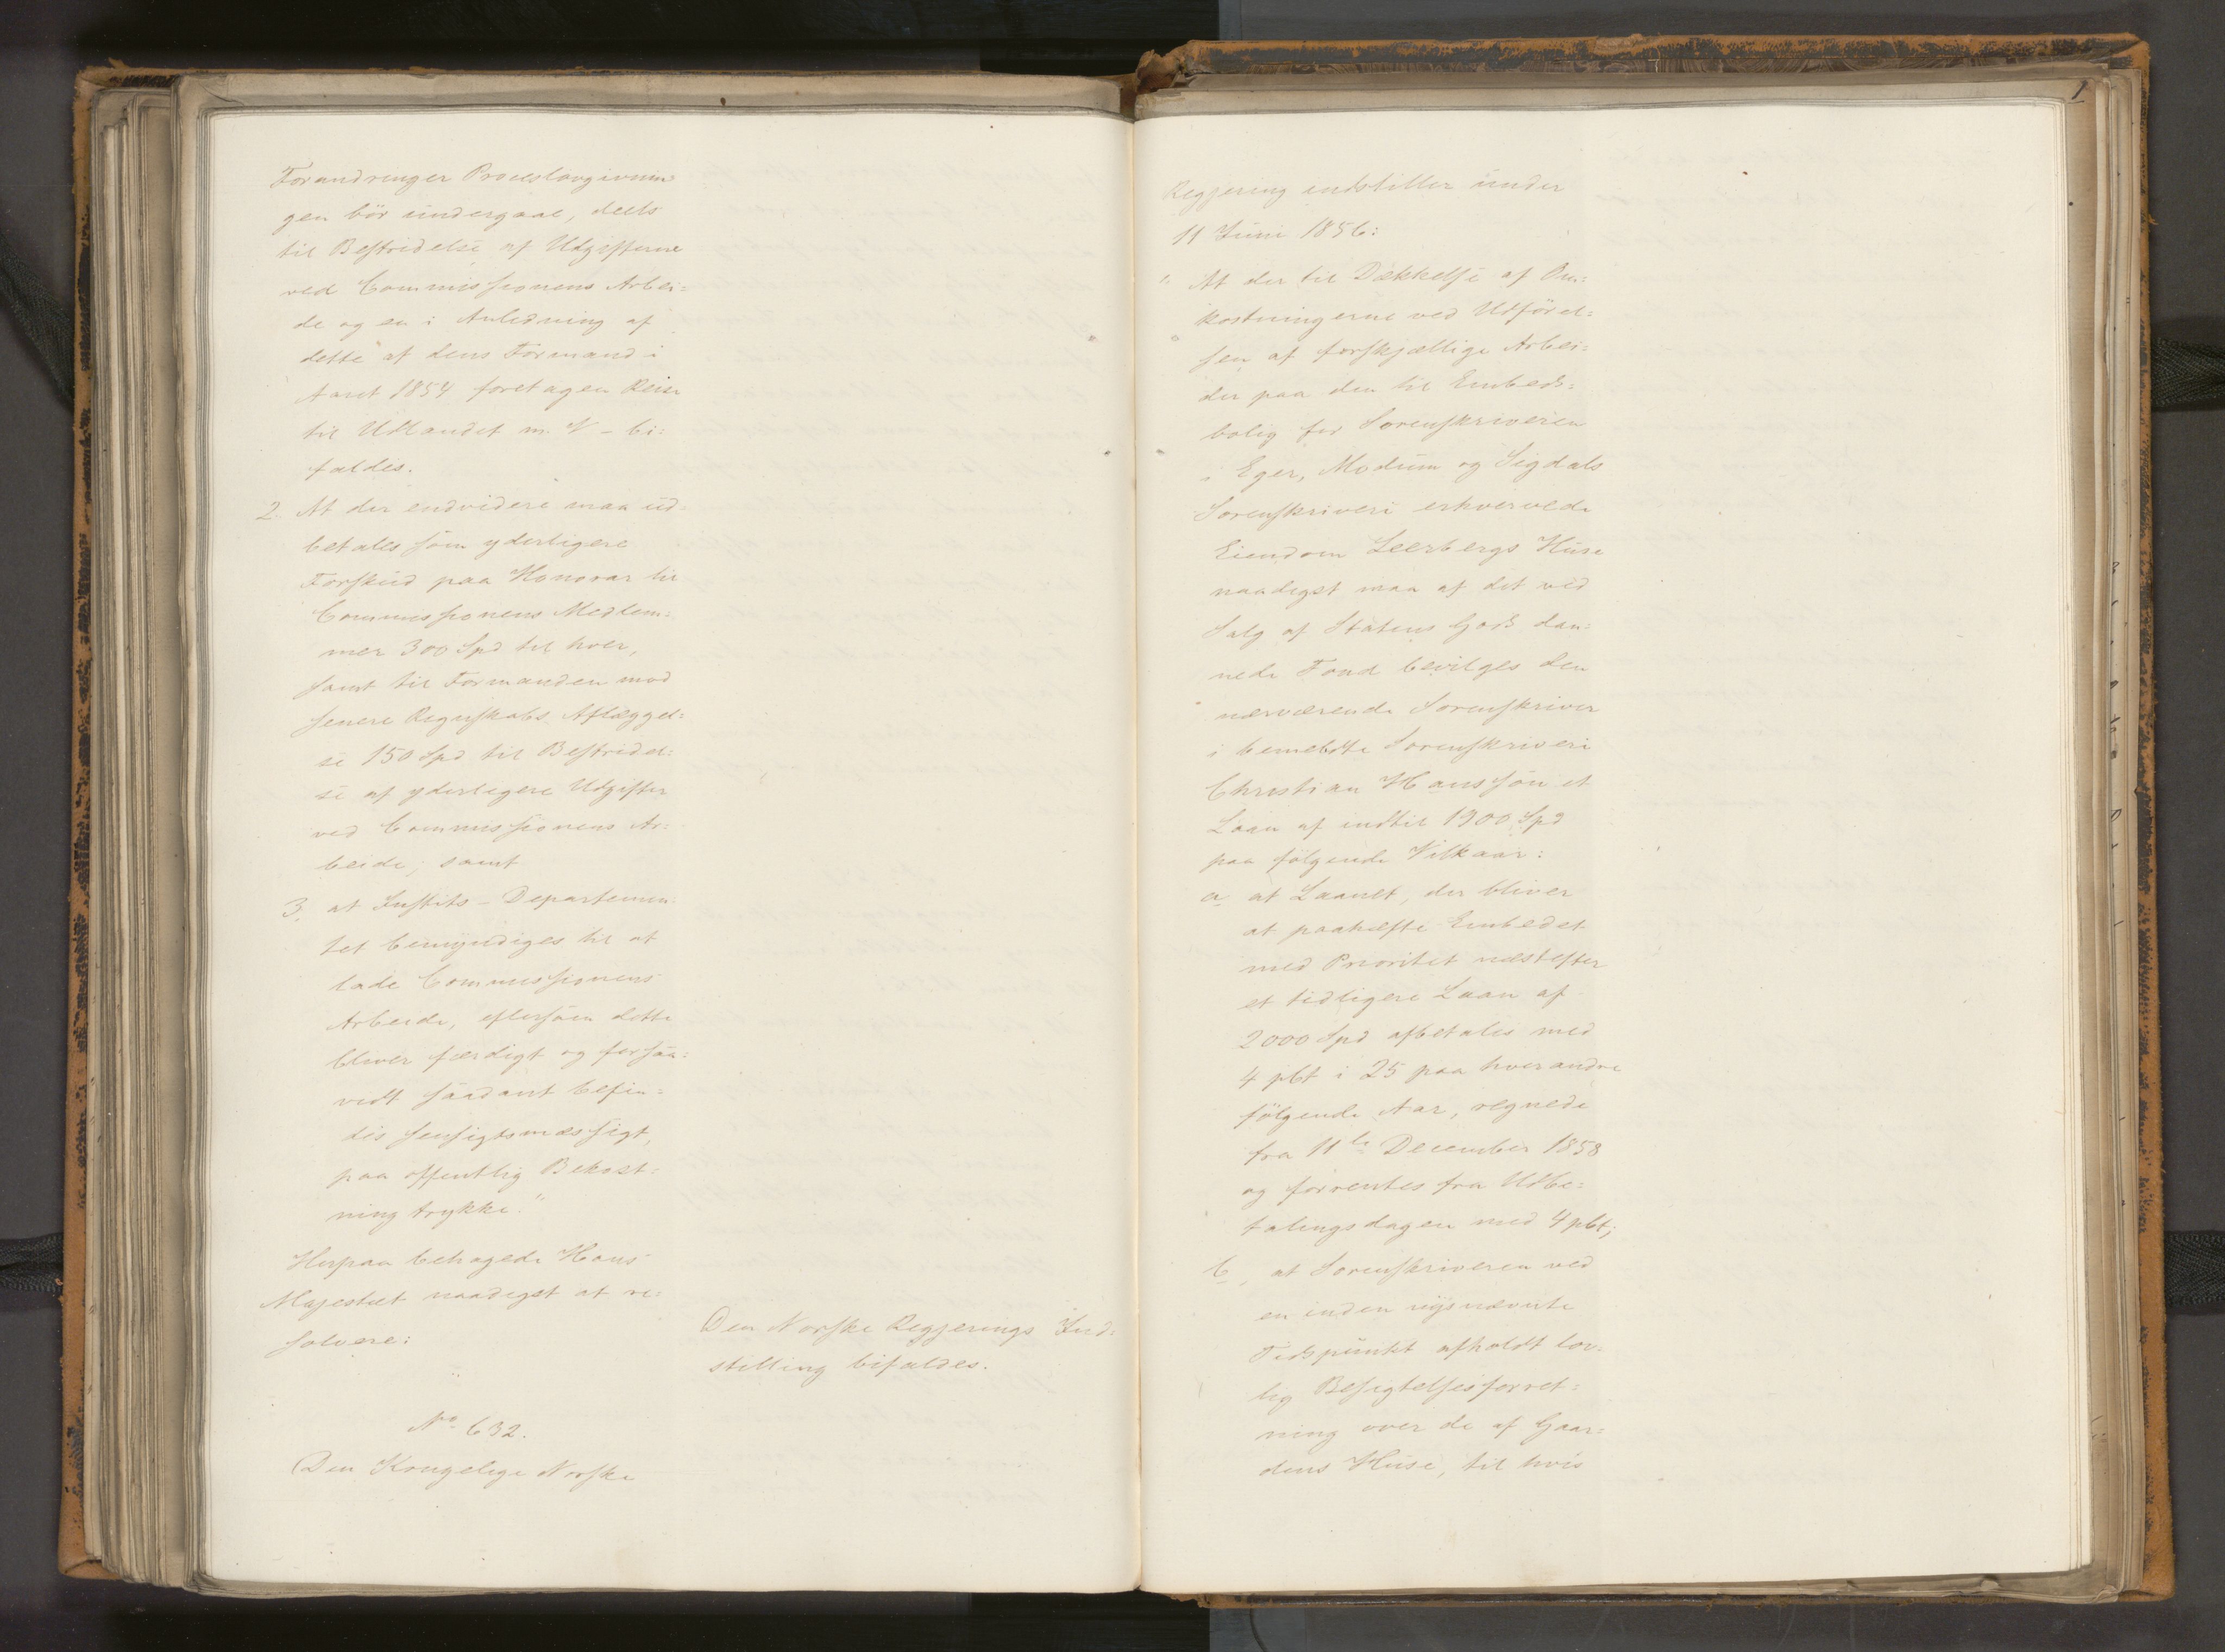 Forandringer Proceslovgivnin
gen bör undergaae, deels
til Bestridelse af Udgifterne
ved Commissionens Arbei:
de og en i Anledning af
dette af dens Formand i
Aaret 1854 foretagen Reise
til Udlandet m. V - bi:
faldes.
2. At der endvidere maa ud:
betales som yderligere
Forskud paa Honorar til
Commissionens Medlem:
mer 300 Spd til hver,
samt til Formanden mod
senere Regnskabs Aflæggel:
se 150 Spd til Bestridel:
se af yderligere Udgifter
ved Commissionens Ar:
beide; samt
3. at Justits-Departemen:
tet bemyndiges til at
lade Commissionens
Arbeide, eftersom dette
bliver færdigt og forsaa:
vidt saadant befin:
des hensigtsmæssigt,
paa offentlig Bekost:
ning trykke."
Herpaa behagede Hans
Majestæt naadigst at re:
solvere:
Den Norske Regjerings Ind:
stilling bifaldes.
No 632.
Den Kongelige Norske
1
Regjering indstiller under
11 Juni 1856:
1. At der til Dækkelse af Om:
kostningerne ved Udförel:
sen af forskjællige Arbei:
der paa den til Embeds:
bolig for Sorenskriveren
i Eger, Modum og Sigdals
Sorenskriveri erhvervede
Eiendom Leerbergs Huse
naadigst maa af det ved
Salg af Statens Gods dan:
nede Fond bevilges den
nærværende Sorenskriver
i bemeldte Sorenskriveri
Christian Hanssön et
Laan af indtil 1900 Spd
paa fölgende Vilkaar:
a at Laanet, der bliver
at paahefte Embedet
med Prioritet næstefter
et tidligere Laan af
2000 Spd afbetales med
4 pCt i 25 paa hverandre
fölgende Aar, regnede
fra 11te December 1858
og forrentes fra Udbe:
talingsdagen med 4 pCt;
b, at Sorenskriveren ved
en inden nysnævnte
Tidspunkt afholdt lov:
lig Besigtelsesforret:
ning over de af Gaar:
dens Huse, til hvis